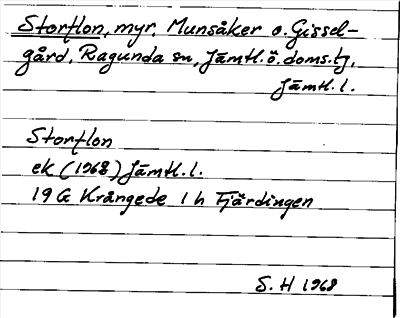 Storflon, myr, Munsåker o. Gissel-
gård, Ragunda sn, Jämtl. ö. doms. tj,
Jämtl. l.
Storflon
ek (1968) Jämtl. l.
19 G Krångede 1 h Fjärdingen
S. H 1968